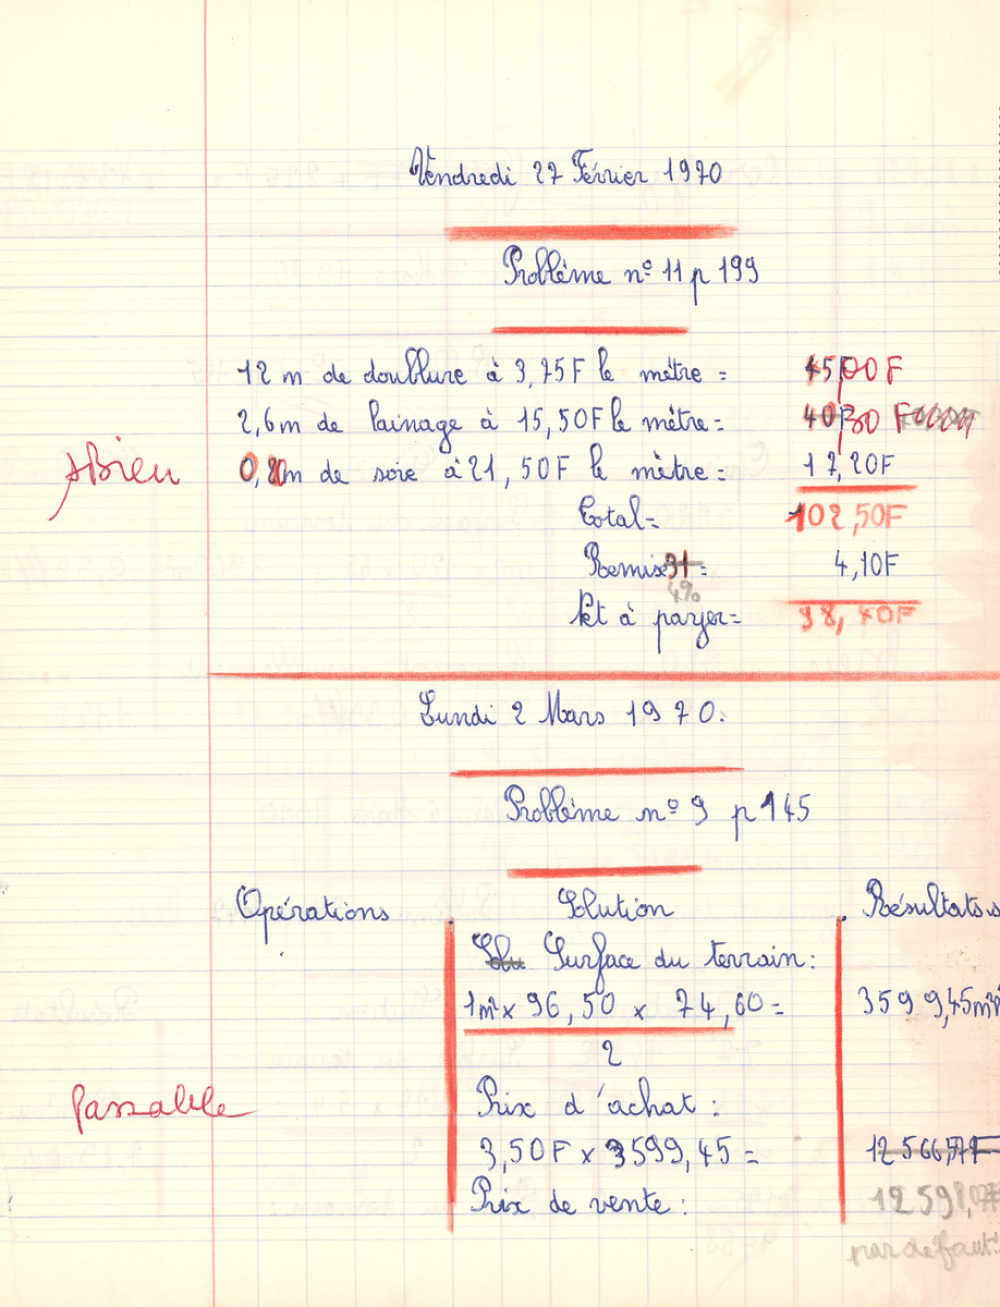 Vendredi 27 Février 1970
Problème n° 11 p 199
12 m de doublure à 3,75F le mètre = 45,00 F
2,6m de lainage à 15,50F le mètre = 40,30 F
ABien
0,80m de soie à 21,50F le mètre = 17,20F
Total = 102,50F
Remise 4% = 4,10F
Net à payer = 98,40F
Lundi 2 Mars 1970.
Problème n° 9 p 145
Opérations Solution Résultats
Solu Surface du terrain :
1m² x 96,50 x 74,60 = 3599,45m²
2
Passable
Prix d'achat :
3,50F x 3599,45 = 12566,57F
Prix de vente : 12598,07F
par défaut